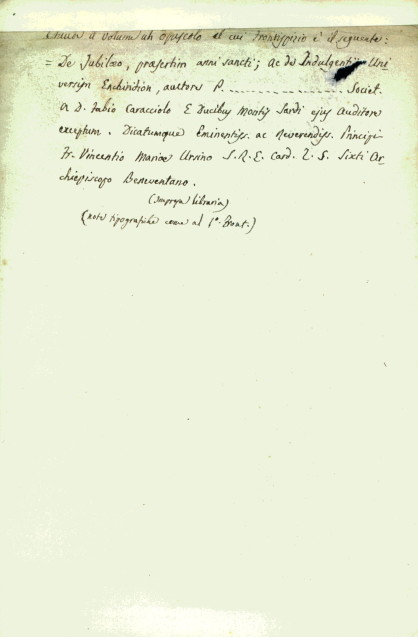 Chiude il volume un opuscolo al cui frontispizio è il seguente:
= De Jubilæo, præsertim anni sancti; ac de Indulgentijs Uni
versijs Enchiridion, autore P. _ _ _ _ _ _ _ _ _ Societ.
a D. Fabio Caracciolo E Ducibus Montis Sardi ejus Auditore
exceptum. Dicatumque Eminentiss. ac Reverendiss. Principi
Fr. Vincentio Mariæ Ursino S.R.E. Card. T. S. Sixti Ar
chiepiscopo Beneventano.
(Impresa libraria)
(note tipografiche come al 1º. Front.)